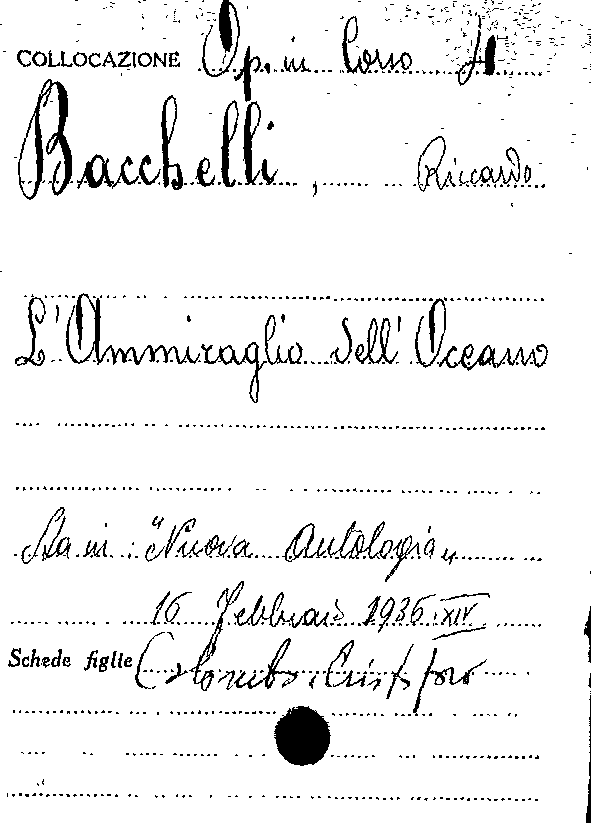 COLLOCAZIONE Op. in Corso It
Bacchelli, Riccardo
L'Ammiraglio dell'Oceano
Sta in: "Nuova Antologia"
16 Febbraio 1936.XIV
Schede figlie Colombo, Cristoforo